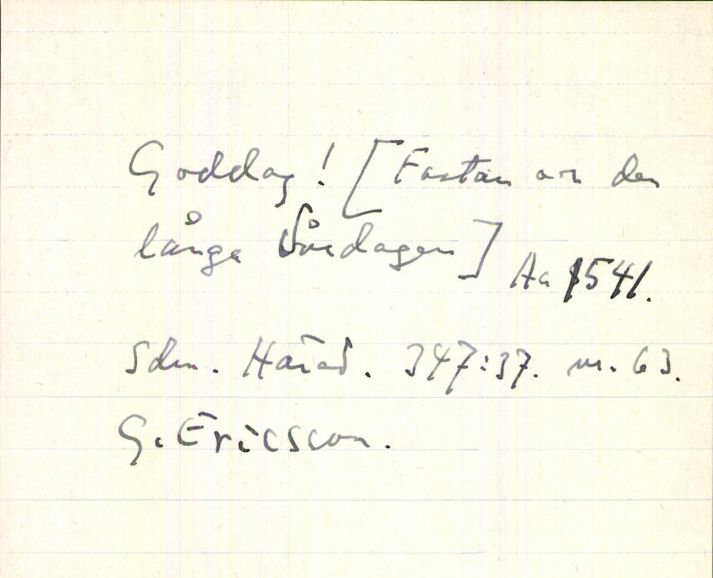 Goddag! [Fastän är den
långa Vårdagen] Aa 1541.
Sdm. Härad. 347:37. nr. 63.
G. Ericsson.